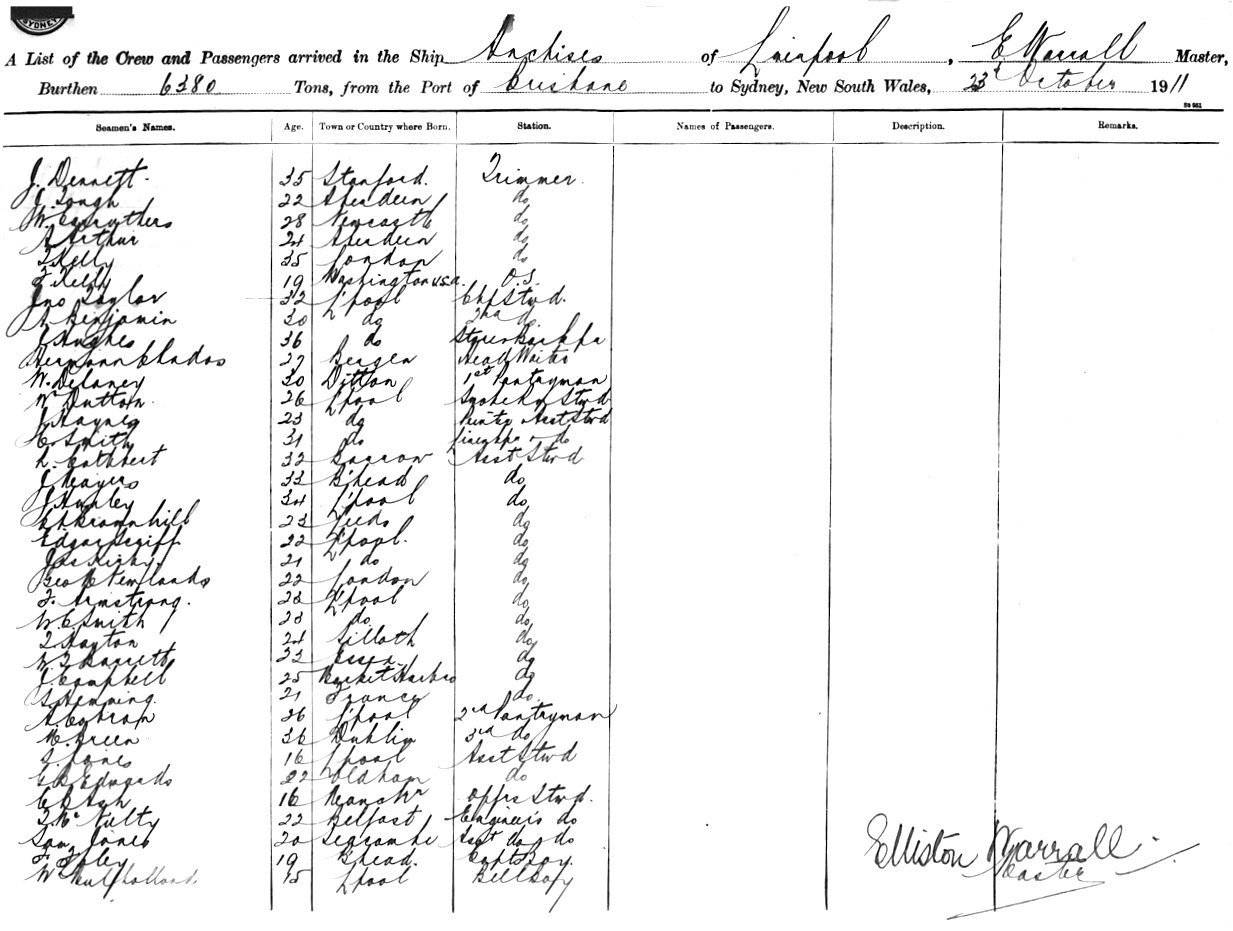 SYDNEY
A List of the Crew and Passengers arrived in the Ship Anchises of Liverpool, E Warrall Master,
Burthen 6380 Tons, from the Port of Brisbane to Sydney, New South Wales, 23rd October 1911
Seamen's Names. Age. Town or Country where Born. Station. Names of Passengers. Description. Remarks.
J. Dennett 35 Stanford. Trimmer
Tough 22 Aberdeen do
W. Carruthers 28 Newcastle do
A Arthur 24 Aberdeen do
T Kelly 35 London do
Kelly 19 Washington U.S.A. O.S.
Jno Taylor 32 L'pool Chf Stwd.
Benjamin 30 do 2nd do
Hughes 36 do
Hermann 27 Bergen Head Waiter
W. Delaney 30 Ditton 1st Pantryman
W Dutton 26 L'pool Stwd
J Haynes 23 do Asst Stwd
Smith 31 do do
L. Cuthbert 32 Barrow Asst Stwd
J Meyers 33 B'head do
J Hurley 34 L'pool do
23 Leeds do
Edgar 22 L'pool. do
Jas Kirby 21 do do
Geo Newlands 22 London do
F. Armstrong. 23 L'pool do
W. C Smith 23 do do
T Hayton 24 Silloth do
W T Barrett 22 Essex do
J. Campbell 25 Market Harbro do
Hemming. 21 France do
A. 26 L'pool 2nd Pantryman
M. Green 36 Dublin 3rd do
Jones 16 L'pool Asst Stwd
Edwards 22 Oldham do
16 Manchr Offrs Stwd.
T Mc Nulty 22 Belfast Engineers do
Saml Jones 20 Seacombe Asst do do
19 B'head. Capts Boy.
W Mulholland. 15 L'pool Bell Boy
Elliston Warrall
Master